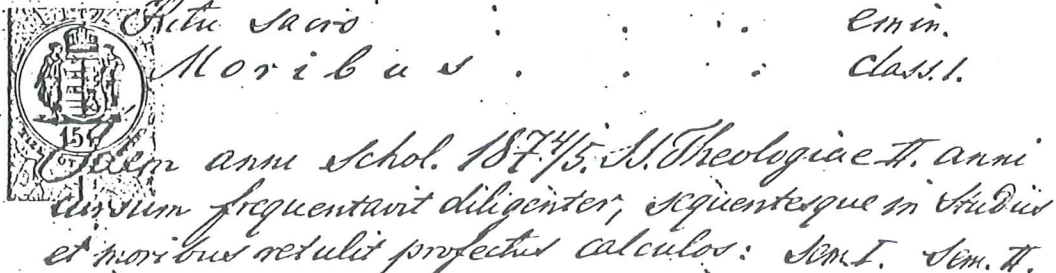 Ritu sacro . . . emin.
Moribus . . . class. I.
15
Idem anni schol. 1874/5. SS. Theologiae II. anni
cursum frequentavit diligenter, sequentesque in studiis
et moribus retulit profectus calculos: Sem I. Sem. II.